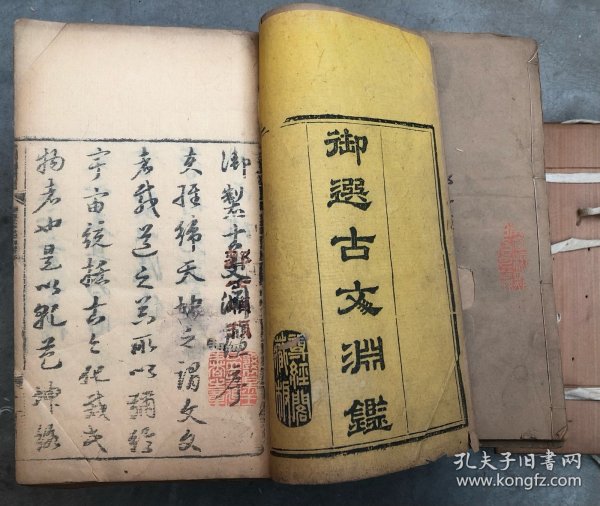 御選古文淵鑑
尊經閣
藏板
御製古文淵鑑序
夫經緯天地之謂文文
者載道之器所以彌綸
宇宙統括古今化裁民
物者也是以乾苞坤絡
孔夫子旧书网
www.kongfz.com